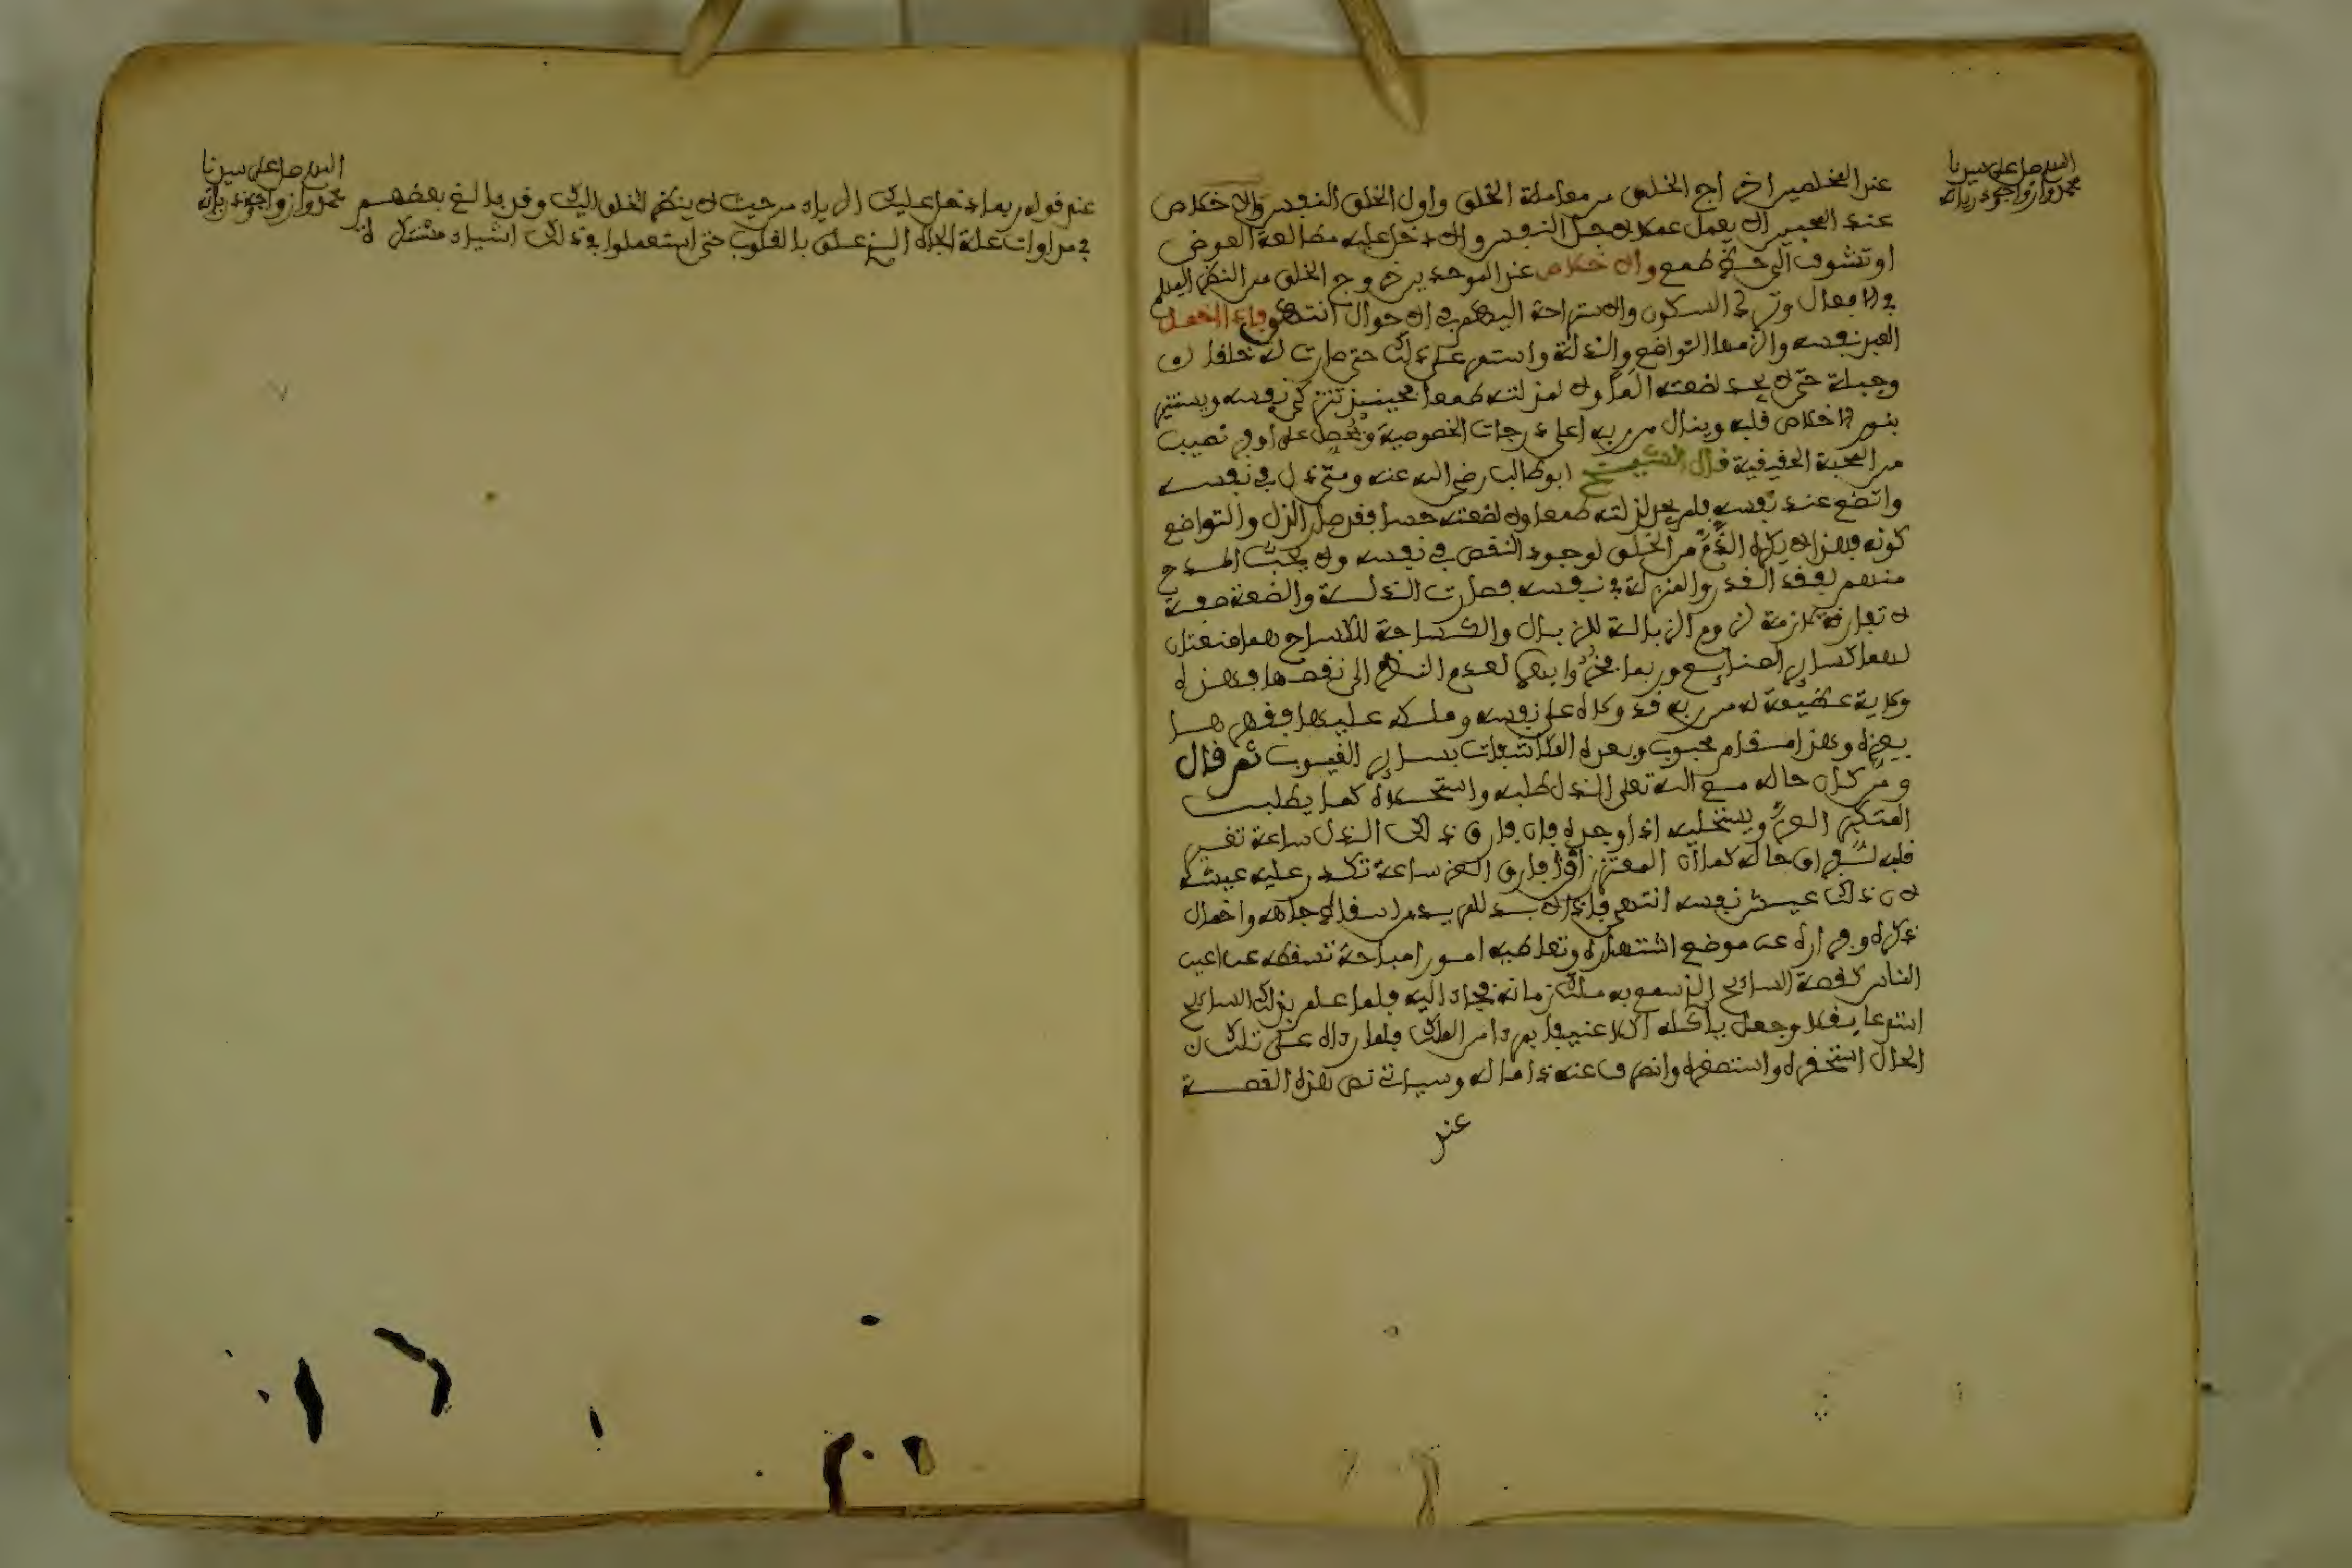 اللهم صل على سيدنا
محمد وازواجه وذرياته
عند المخلصين اخراج الخلق من معاملة الخلق واول الخلق النفس والاخلاص
عند المحبين ان لا يعمل عملا لاجل النفس والا دخل عليه مطالعة العوض
او تشوف الى حظ طمع والاخلاص عند الموحدين خروج الخلق من النظر اليهم
في الافعال وترك السكون والاستراحة اليهم في الاحوال انتهى فاذا اخمل
العبد نفسه والزمها التواضع والذلة واستمر على ذلك حتى صارت له خلقا
وجبلة حتى لا يجد لضعته الما ولا لمذلته طعما فحينئذ تتزكى نفسه ويستنير
بنور الاخلاص قلبه وينال من ربه اعلى درجات الخصوصية ويحصل على اوفر نصيب
من المحبة الحقيقية قال الشيخ ابو طالب رضي الله عنه ومتى ذل في نفسه
واتضع عند نفسه فلم يجد لذلته طعما ولا لضعته حسا فقد صار الذل والتواضع
كونه فهذا لا يكره الذم من الخلق لوجود النقص في نفسه ولا يحب المدح
منهم لفقد القدر والمنزلة في نفسه فصارت الذلة والضعة صفة
لا تفارقه لازمة لزوم الزبالة للزبال والكساحة للكساح هما صنعتان
لهما كساير الصنايع وربما فخروا بهما لعدم النظر الى نقصهما فهذه
ولاية عظيمة له من ربه قد ولاه على نفسه وملكه عليها فقهرها
بعزه وهذا مقام محبوب وبعده المكاشفات بسراير الغيوب ثم قال
ومن كان حاله مع الله تعلى الذل طلبه واستحلاه كما يطلب
المتكبر العز ويستحليه اذا وجده فان فارق ذلك الذل ساعة تغير
قلبه لفراق حاله كما ان المعتز ان فارق العز ساعة تكدر عليه عيشه
لان ذلك عيش نفسه انتهى فاذا لا بد للمريد من اسقاط جاهه واخمال
ذكره وفراره عن موضع اشتهاره وتعاطيه امورا مباحة تسقطه عن اعين
الناس كقصة السايح الذي سمع به ملك زمانه فجاء اليه فلما علم بذلك السايح
استدعا بقلا وجعل ياكله اكلا عنيفا بمرءا من الملك فلما رءاه على تلك
الحال استحقره واستصغره وانصرف عنه ذاما له وسياتي نص هذه القصة
عند
اللهم صل على سيدنا
محمد وازواجه وذرياته
عند قوله ربما دخل عليك الرياء من حيث لا ينظر الخلق اليك وقد بالغ بعضهم
في مداوات علة الجاه الذي علق بالقلوب حتى استعملوا في ذلك اشياء منكرة